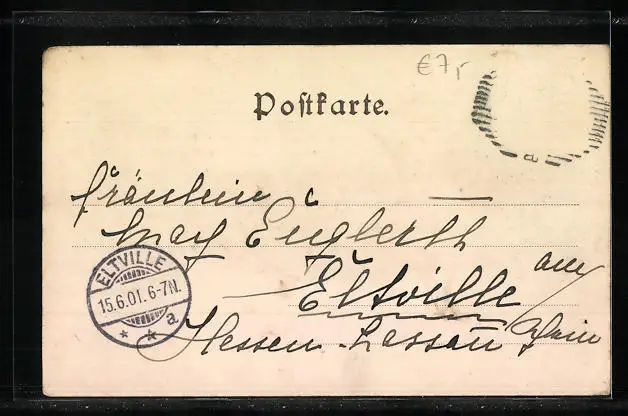 €7,-
Postkarte.
Fräulein
May Englerth
Eltville am
Rhein
Hessen-Nassau
ELTVILLE
15.6.01.6-7N.
* * a
a